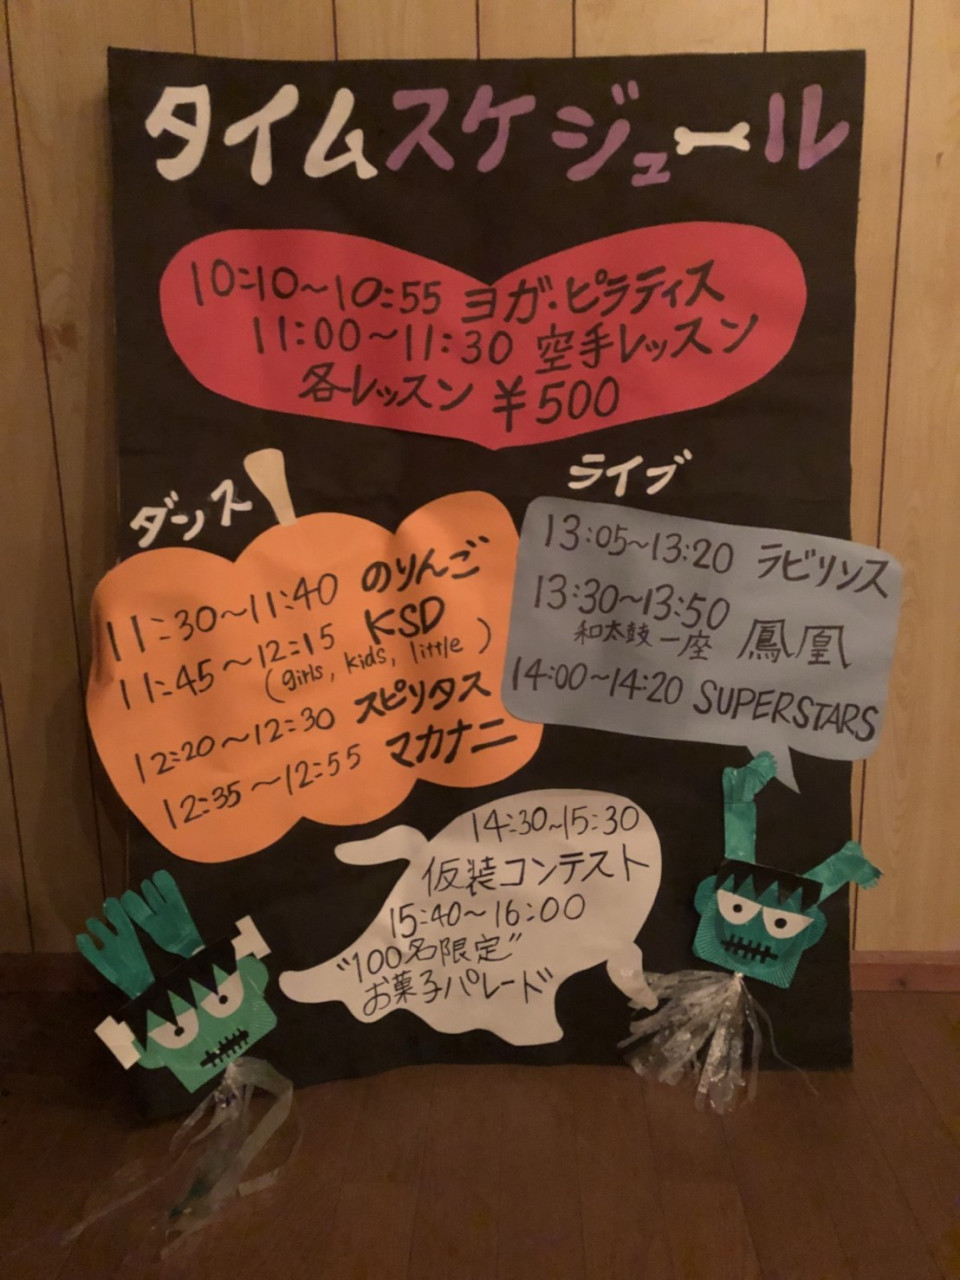 タイムスケジュール
10:10〜10:55 ヨガ・ピラティス
11:00〜11:30 空手レッスン
各レッスン ¥500
ダンス
11:30〜11:40 のりんご
11:45〜12:15 KSD
(girls, kids, little)
12:20〜12:30 スピリタス
12:35〜12:55 マカナニ
ライブ
13:05〜13:20 ラビリンス
13:30〜13:50
和太鼓一座 鳳凰
14:00〜14:20 SUPERSTARS
14:30〜15:30
仮装コンテスト
15:40〜16:00
"100名限定"
お菓子パレード